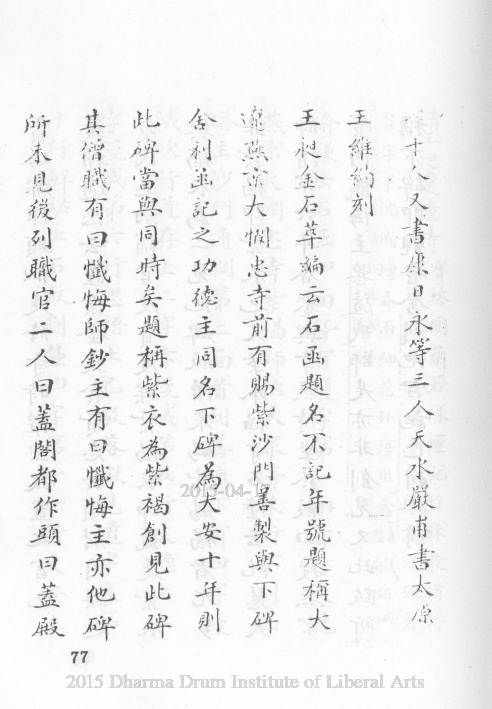 三十人又書梁日永等三人天水嚴甫書太原
王維約刻
王昶金石萃編云石函題名不記年號題稱大
遼燕京大憫忠寺前有賜紫沙門善製與下碑
舍利函記之功德主同名下碑為大安十年則
此碑當與同時矣題稱紫衣為紫褐創見此碑
其僧職有曰懺悔師鈔主有曰懺悔主亦他碑
所未見後列職官二人曰蓋閣都作頭曰蓋殿
77
2015-04-1
2015 Dharma Drum Institute of Liberal Arts